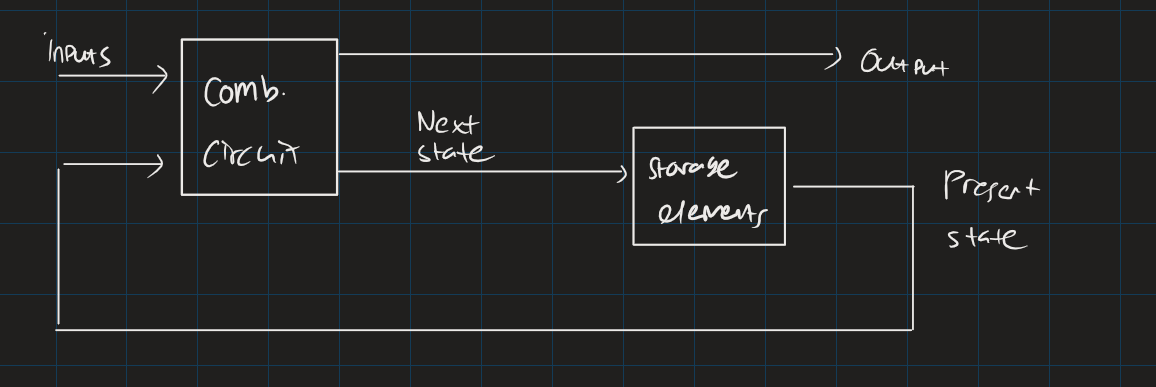 Inputs
Comb.
Circuit
Output
Next
state
Storage
elements
Present
state